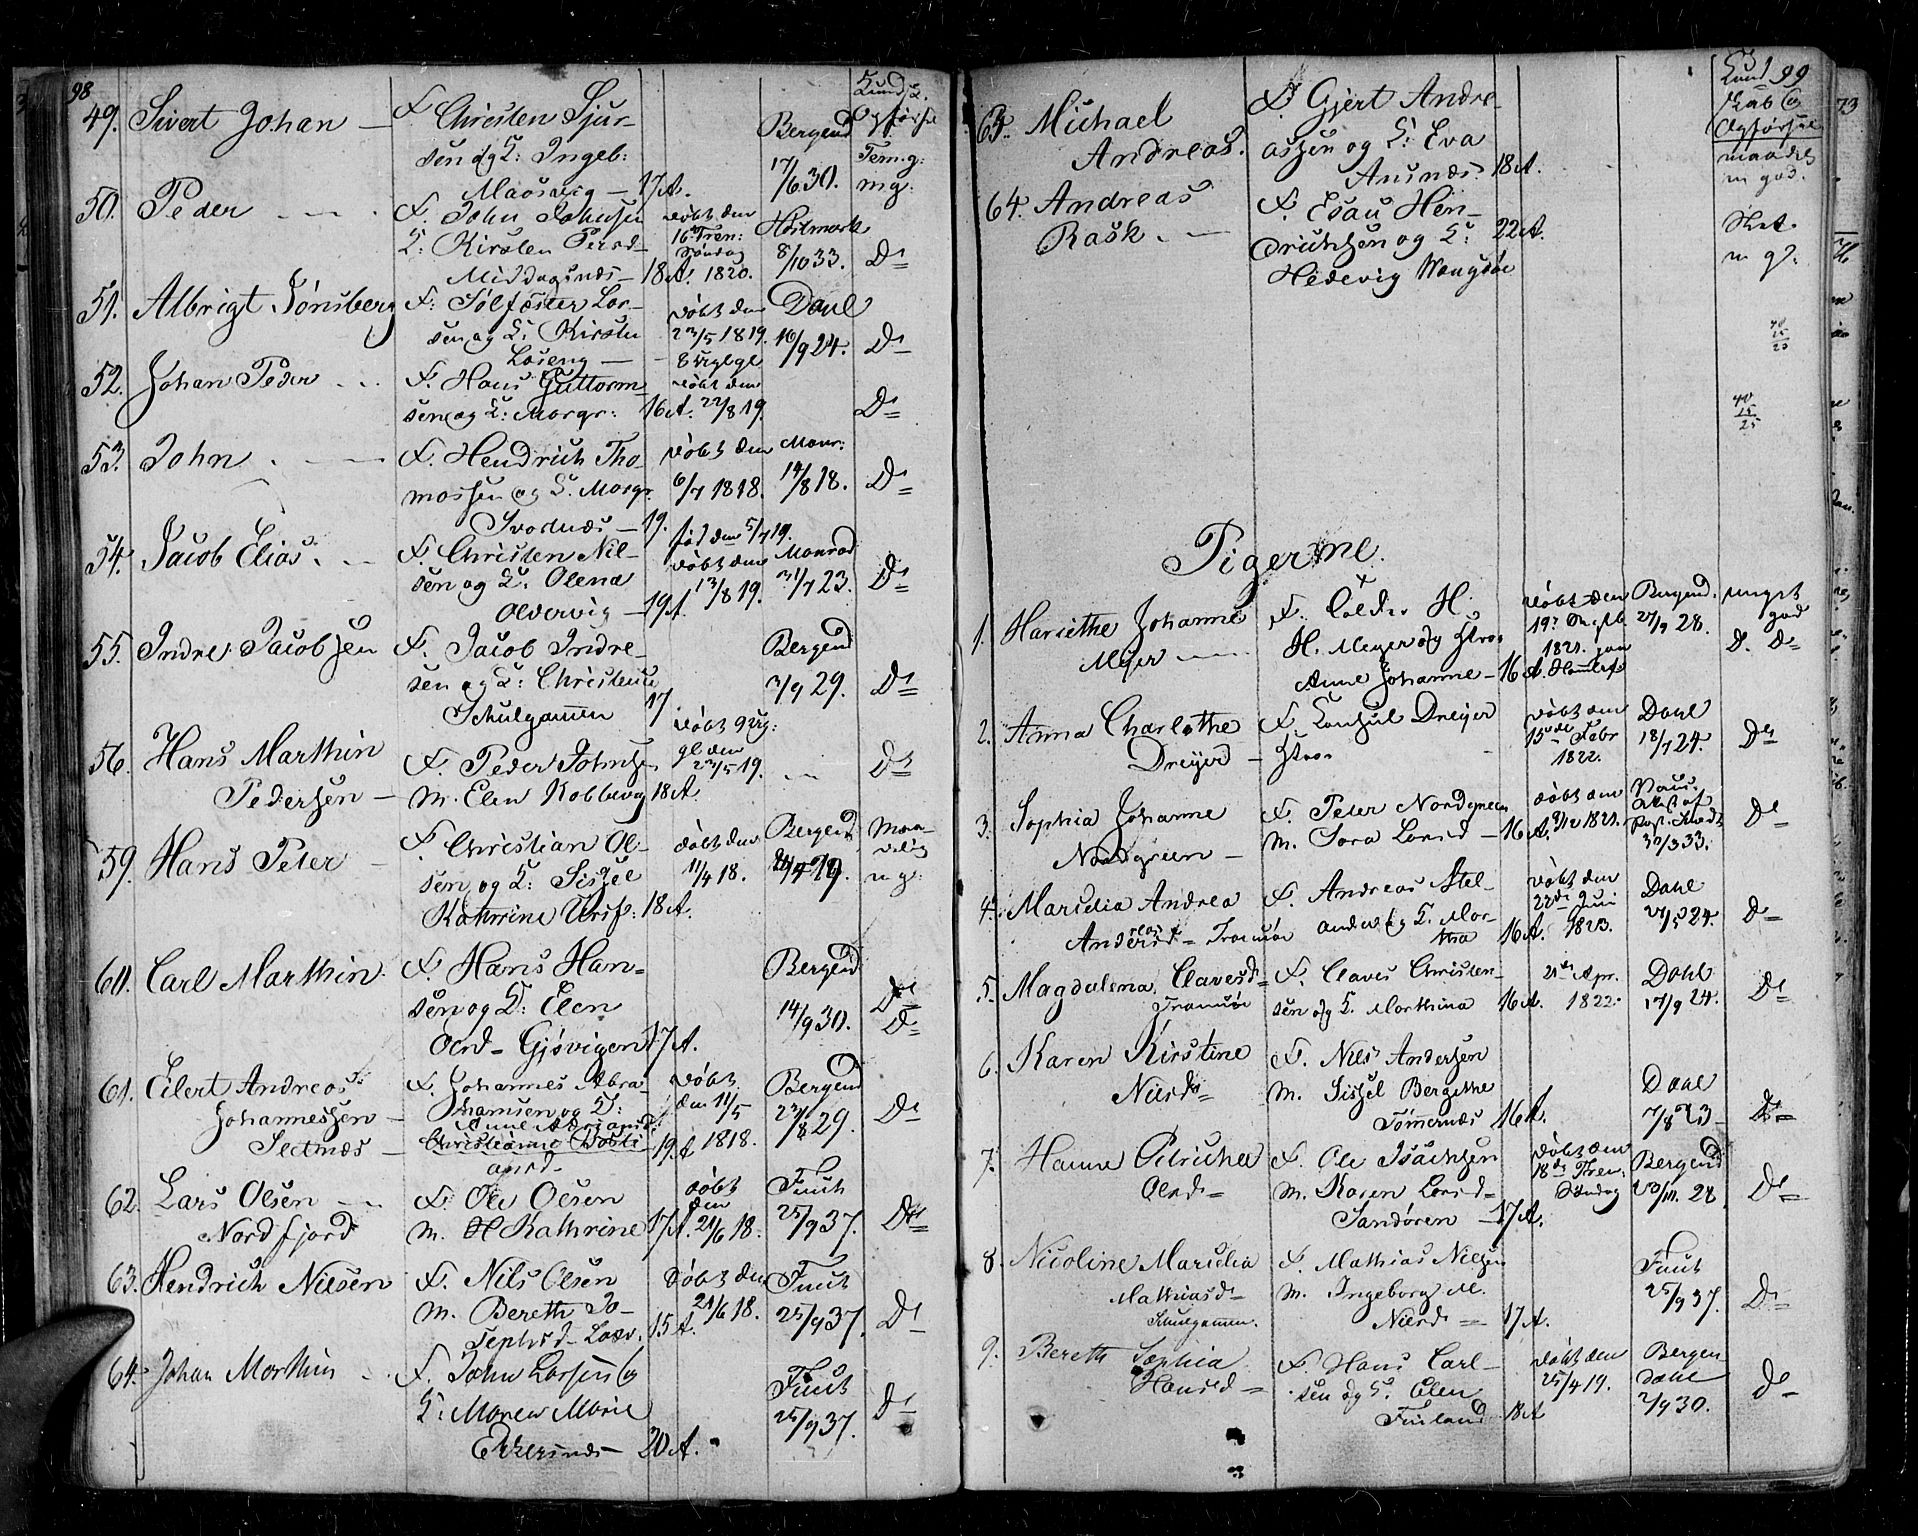 98
Kundsk.
Opførsel
49. Sivert Johan —
F. Christen Sjur-
sen og K: Ingeb:
Maasvig — 17 A.
Bergend
17/6 30.
Tem. g:
m g:
50. Peder — — .
F. John Johnsen
K: Kirsten Persd
Middagsnæs — 18 A.
døbt den
16 Tren:
Søndag
1820.
Hoelmark
8/10 33.
D=
51. Albrigt Tønsberg
F. Sølfæster Lar-
sen og K: Kirsten
Laseng —
døbt den
23/5 1819.
8 Ugl gl
Dahl
10/9 24.
D=
52. Johan Peder . . .
F. Hans Guttorm
sen og K: Margr: 16 A.
døbt den
22/8 19.
D=
53. John . —
F. Hendrich Tho-
massen og K. Margr.
Svartnæs — 19.
døbt den
6/7 1818.
Monr:
14/8 18.
D=
54. Jacob Elias . —
F. Christen Nil-
sen og K: Olena
Oldervig — 19 A.
fød den 5/7 19.
døbt den
13/8 19.
Monrad
31/7 23.
D=
55. Indre Jacobsen
F. Jacob Indre-
sen og K: Christense
Schulgamen 17.
Bergend
3/9 29.
D=
56. Hans Marthin
Pedersen —
F. Peder Johnse
M. Elen Kobbevog 18 A.
døbt 9 Ug:
gl den
23/5 19.
D=
59. Hans Peter —
F. Christian Ol-
sen og K: Sissel
Kathrine Ursf: 18 A.
døbt den
11/4 18.
Bergend
Maa-
delig
m g:
60. Carl Marthin
F. Hans Han-
sen og K: Elen
Olsd- Gjøvigen 17 A.
Bergend
14/9 30.
D=
D=
61. Eilert Andreas
Johannessen —
Seetnæs —
F. Johannes Abra
hamsen og K:
Anne Adriansd:
Christianne
19 A
døbt
den 11/5
1818.
Bergend
23/8 29.
D=
62. Lars Olsen —
Nordfjord
F. Ole Olsen
M. Kathrine 17 A.
døbt
den
21/6 18.
Fuut
25/9 37.
D=
63. Hendrich Nielsen
F. Nils Olsen
M. Bereth Jo-
sephsd- 15 A.
døbt den
21/6 18.
Fuut
25/9 37.
D=
64. Johan Marthin .
F. John Larsen og
K: Maren Marie
20 A.
Fuut
25/9 37.
D=
99
Kund
skab og
Opførsel
63. Michael
Andreas.
F. Gjert Andre-
assen og K: Eva
Ansnæs 18 A.
maadel
m god.
64. Andreas
Rask . —
F. Esau Hen-
drichsen og K: 22 A.
Hedevig Vangsøe
Slet
m g:
40
15
25
40
15
25
Pigerne.
1. Hariethe Johanne
Meyer —
F. Colder H.
H. Meyer og Hstro
Anne Johanne — 16 A.
døbt den
1821. paa
Hammerf
Bergend.
27/9 28.
meget
god
D. D=
2. Anna Charlothe
Dreyer —
F. Konsul Dreyer
Hstro
døbt den
15de Febr
1822.
Dahl
18/7 24.
D=
3. Sophia Johanne
Nordgreen —
F. Peter Nordgreen
M. Sara Larsd — 16 A.
døbt den
9/12 1821.
Vacc.
Attest af
30/3 33.
D=
4. Marselia Andrea
Andersd= Tromsøe
F. Andreas Ael-
ander og K. Mar-
tha 16 A.
døbt den
22de Juni
1823.
Dahl
27/5 24.
D=
5. Magdalena Claversd=
Tromsøe
F. Claves Christen-
sen og K. Marthina 16 A.
21de Apr.
1822.
Dahl
17/9 24.
D=
6. Karen Kirstine
Nilsd=
F. Niels Andersen
M. Sissel Bergithe
Tømernæs 16 A.
Dahl
7/8 23
D=
7. Hanne Petricha
Olsd=
F. Ole Isachsen
M. Karen Larsd=
Sandøren — 17 A.
døbt den
18de Tren:
Søndag
Bergend
D=
8. Nicoline Marselia
Mathiasd=
Schulgamen.
F. Mathias Nielsen
M. Ingeborg M.
Nilsd= 17 A.
Fuut
25/9 37.
D=
9. Bereth Sophia
Hansd=
F. Hans Carl-
sen og K. Elen
Finland 18 A
døbt den
25/4 19.
Bergen
dahl
2/9 30.
D=